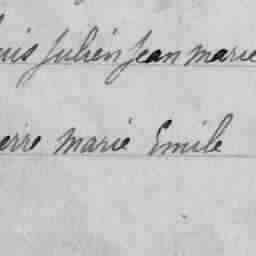 uis Julien Jean marie
erre marie Emile